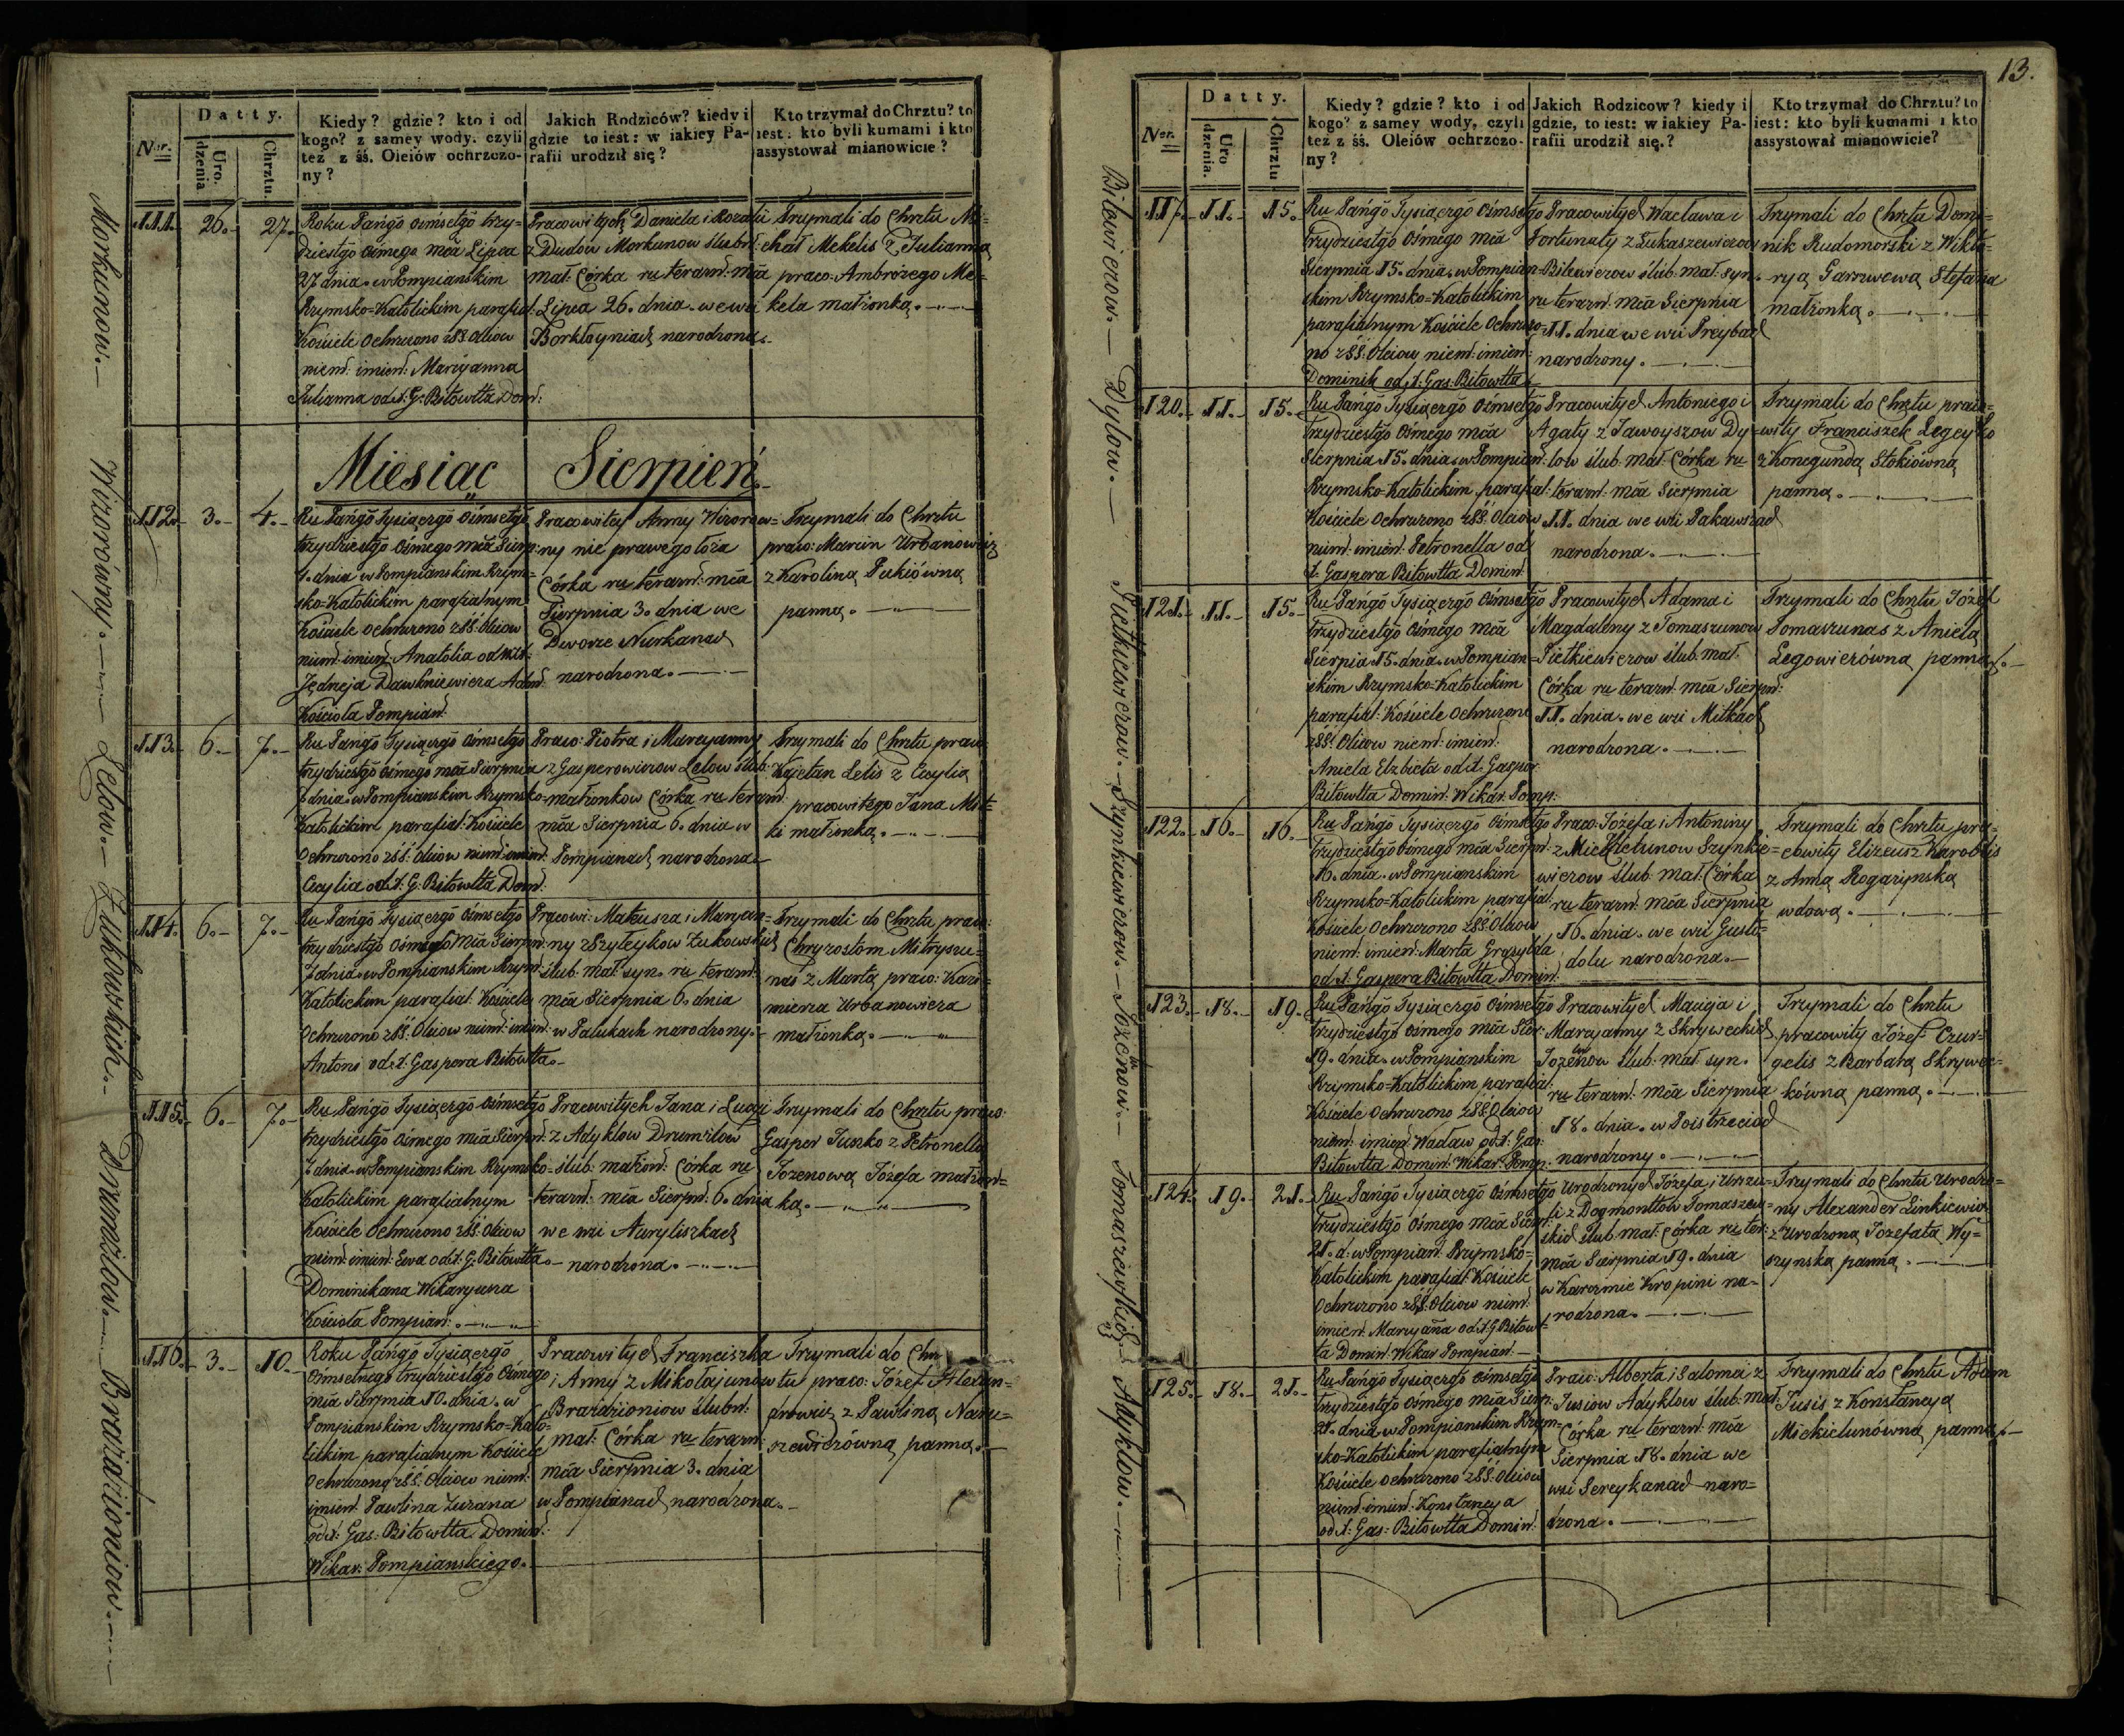 Datty.
Ner.
Uro. dzenia
Chrztu.
Kiedy? gdzie? kto i od
kogo? z samey wody. czyli
też z śś. Oleiów ochrzczo-
ny?
Jakich Rodziców? kiedy i
gdzie to iest: w iakiey Pa-
rafii urodził się?
Kto trzymał do Chrztu? to
iest: kto byli kumami i kto
assystował mianowicie?
Morkunow.
111. 26. 27.
Roku Pańgō ośmsetgō trzy=
dziestgō ósmego mca Lipca
27 dnia w Pompianskim
Rzymsko=Katolickim parafial:
Kościele Ochrzczono z SS. Oleiow
niem: imien: Maryanna
Julianna od J: G: Bitowtta Dom:
Pracowitych Daniela i Rozalii
z Dudow Morkunow ślubn:
mał: Córka ru terazn: mca
Lipca 26. dnia we wsi
Borkłoyniach narodzona.
Trzymali do Chrztu Mi=
chał Mekelis z Julianną
praco: Ambrożego Me=
kela małżonką.
Miesiąc Sierpień.
Wizorowny.
112. 3. 4.
Ru Pańgō Tysiącgō Ośmsetgō
trzydziestgō Osmego mca Sierp:
4. dnia w Pompianskim Rzym=
sko=Katolickim parafialnym
Kościele Ochrzczono z SS. Oleiow
niem: imien: Anatolia od
Jędrzeja Dawkniewicza Adm:
Kościoła Pompian:
Pracowitey Anny Wizorow=
ny nie prawego łoża
Córka ru terazn: mca
Sierpnia 3. dnia we
Dworze Nurkanach
narodzona.
Trzymali do Chrztu
praco: Marcin Urbanowicz
z Karoliną Pukiówną
panną.
Lelow.
113. 6. 7.
Ru Pańgō Tysiącgō Ośmsetgō
trzydziestgō ósmego mca Sierpnia
7 dnia w Pompianskim Rzymsko=
Katolickim parafial: Kościele
Ochrzczono z SS. Oleiow niem: imien:
Cecylia od J: G: Bitowtta Dom:
Praco: Piotra i Maryanny
z Gasperowiczow Lelow ślub:
małżonkow Córka ru terazn:
mca Sierpnia 6. dnia w
Pompianach narodzona
Trzymali do Chrztu praco:
Kajetan Lelis z Cecylią
pracowitego Jana Mit=
ki małżonką.
Żukowskich.
114. 6. 7.
Ru Pańgō Tysiącgō Ośmsetgō
trzydziestgō Osmego mca Sierpn:
7 dnia w Pompianskim Rzym:
Katolickim parafial: Kościele
Ochrzczono z SS: Oleiow niem: imien:
Antoni od J: Gaspora Bitowtta.
Pracowi: Mateusza i Maryan=
ny z Szyłeykow Żukowskich
ślub: mał: syn. ru terazn:
mca Sierpnia 6. dnia
w Pałukach narodzony.
Trzymali do Chrztu praco:
Chryzostom Mitryszu=
nas z Martą praco: Kazi=
mierza Urbanowicza
małżonką.
Drumzilow.
115. 6. 7.
Ru Pańgō Tysiącgō Ośmsetgō
trzydziestgō Osmego mca Sierpn:
7 dnia w Pompianskim Rzymsko=
Katolickim parafialnym
Kościele Ochrzczono z SS: Oleiow
niem: imien: Ewa od J: G: Bitowtta
Dominikana Wikaryusza
Kościoła Pompian:
Pracowitych Jana i Łucyi
z Adyklow Drumzilow
ślub: małżon: Córka ru
terazn: mca Sierpn: 6. dnia
we wsi Auryliszkach
narodzona.
Trzymali do Chrztu praco:
Gasper Juszko z Petronellą
Jozenową Józefa małżon=
ką.
Brazdżioniow.
116. 3. 10.
Roku Pańgō Tysiącgō
Ośmsetnego trzydziestgō Osmego
mca Sierpnia 10. dnia. w
Pompianskim Rzymsko=Kato=
lickim parafialnym Kościele
Ochrzczono z SS: Oleiow niem:
imien: Pawlina Zuzana
od J: Gas: Bitowtta Domin:
Wikar: Pompianskiego.
Pracowitych Franciszka
i Anny z Mikołajunow
Brazdzioniow ślubn:
mał: Córka ru terazn:
mca Sierpnia 3. dnia
w Pompianach narodzona.
Trzymali do Chrz=
tu praco: Jozef Alexan=
drowicz z Pawliną Naru=
szewiczówną panną.
13.
Datty.
Ner.
Uro dzenia.
Chrztu
Kiedy? gdzie? kto i od
kogo? z samey wody, czyli
też z śś. Oleiów ochrzczo-
ny?
Jakich Rodzicow? kiedy i
gdzie, to iest: w iakiey Pa-
rafii urodził się.?
Kto trzymał do Chrztu? to
iest: kto byli kumami i kto
assystował mianowicie?
Bitowierow.
117. 11. 15.
Ru Pańgō Tysiącgō Ośmsetgō
trzydziestgō Osmego mca
Sierpnia 15. dnia. w Pompian=
skim Rzymsko=Katolickim
parafialnym Kościele Ochrzczo=
no z SS: Oleiow niem: imien:
Dominik od J: Gas: Bitowtta
Pracowitych Wacława i
Fortunaty z Łukaszewiczow
Bitewierow ślub: mał: syn.
ru terazn: mca Sierpnia
11. dnia we wsi Preybach
narodzony.
Trzymali do Chrztu Domi=
nik Rudomorski z Wikto=
ryą Garnwewą Stefana
małżonką.
Dylow.
120. 11. 15.
Ru Pańgō Tysiącgō Ośmsetgō
trzydziestgō Osmego mca
Sierpnia 15. dnia w Pompian:
Rzymsko=Katolickim parafial:
Kościele Ochrzczono z SS: Oleiow
niem: imien: Petronella od
J: Gaspora Bitowtta Domin:
Pracowitych Antoniego i
Agaty z Jawoyszow Dy=
low ślub: mał: Córka ru
terazn: mca Sierpnia
11. dnia we wsi Pakawszach
narodzona.
Trzymali do Chrztu praco=
wity Franciszek Legeyko
z Konegundą Stokiowną
panną.
Pietkiewiczow.
121. 11. 15.
Ru Pańgō Tysiącgō Ośmsetgō
trzydziestgō Osmego mca
Sierpia 15. dnia. w Pompian=
skim Rzymsko=Katolickim
parafial: Kościele Ochrzczono
z SS: Oleiow niem: imien:
Aniela Elzbieta od J: Gaspor
Bitowtta Domin: Wikar: Pomp:
Pracowitych Adama i
Magdaleny z Tomaszunow
Pietkiewiczow ślub: mał:
Córka ru terazn: mca Sierpn:
11. dnia. we wsi Mitkach
narodzona.
Trzymali do Chrztu Józef
Tomaszunas z Anielą
Legowiczówną panną.
Szynkiewiczow.
122. 16. 16.
Ru Pańgō Tysiącgō Ośmsetgō
trzydziestgō Osmego mca Sierpn:
16. dnia. w Pompianskim
Rzymsko=Katolickim parafial
Kościele Ochrzczono z SS: Oleiow
niem: imien: Marta Grasylda
od J: Gaspera Bitowtta Domin:
Praco: Józefa i Antoniny
z Mickielunow Szynkie=
wiczow ślub: mał: Córka
ru terazn: mca Sierpnia
16. dnia. we wsi Gusto=
dolu narodzona.
Trzymali do Chrztu pra=
cowity Elizeusz Karoblis
z Anną Rogaczynską
wdową.
Jozenow.
123. 18. 19.
Ru Pańgō Tysiącgō Ośmsetgō
trzydziestgō Osmego mca Sier:
19. dnia. w Pompianskim
Rzymsko=Katolickim parafial:
Kościele Ochrzczono z SS: Oleiow
niem: imien: Wacław od J: Gas:
Bitowtta Domin: Wikar: Pomp:
Pracowitych Macieja i
Maryanny z Skryweckich
Jozenow ślub: mał: syn.
ru terazn: mca Sierpnia
18. dnia. w Poistrzeciach
narodzony.
Trzymali do Chrztu
pracowity Józef Czur=
gelis z Barbarą Skrywec=
kówną panną.
Tomaszewskich.
124. 19. 21.
Ru Pańgō Tysiącgō Ośmsetgō
trzydziestgō Osmego mca Sierp:
21. d: w Pompian: Rzymsko=
Katolickim parafial: Kościele
Ochrzczono z SS. Oleiow niem:
imien: Maryaña od J: G Bitow=
ta Domin: Wikar Pompian:
Urodzonych Józefa i Urszu=
li z Dogmonttow Tomaszew=
skich ślub: mał: Córka ru ter:
mca Sierpnia 19. dnia
w Karczmie Kropini na=
rodzona.
Trzymali do Chrztu Urodzo=
ny Alexander Linkiewicz
z Urodzoną Jozefatą Wy=
szynską panną.
Adyklow.
125. 18. 21.
Ru Pańgō Tysiącgō Ośmsetgō
trzydziestgō Osmego mca Sierp:
21. dnia w Pompianskim Rzym=
sko=Katolickim parafialnym
Kościele Ochrzczono z SS: Oleiow
niem: imien: Konstancya
od J: Gas: Bitowtta Domin:
Praco: Alberta i Salomei z
Jusiow Adyklow ślub: mał:
Córka ru terazn: mca
Sierpnia 18. dnia we
wsi Sereykanach naro=
dzona.
Trzymali do Chrztu Adam
Jusis z Konstancyą
Mickielunówną panną.